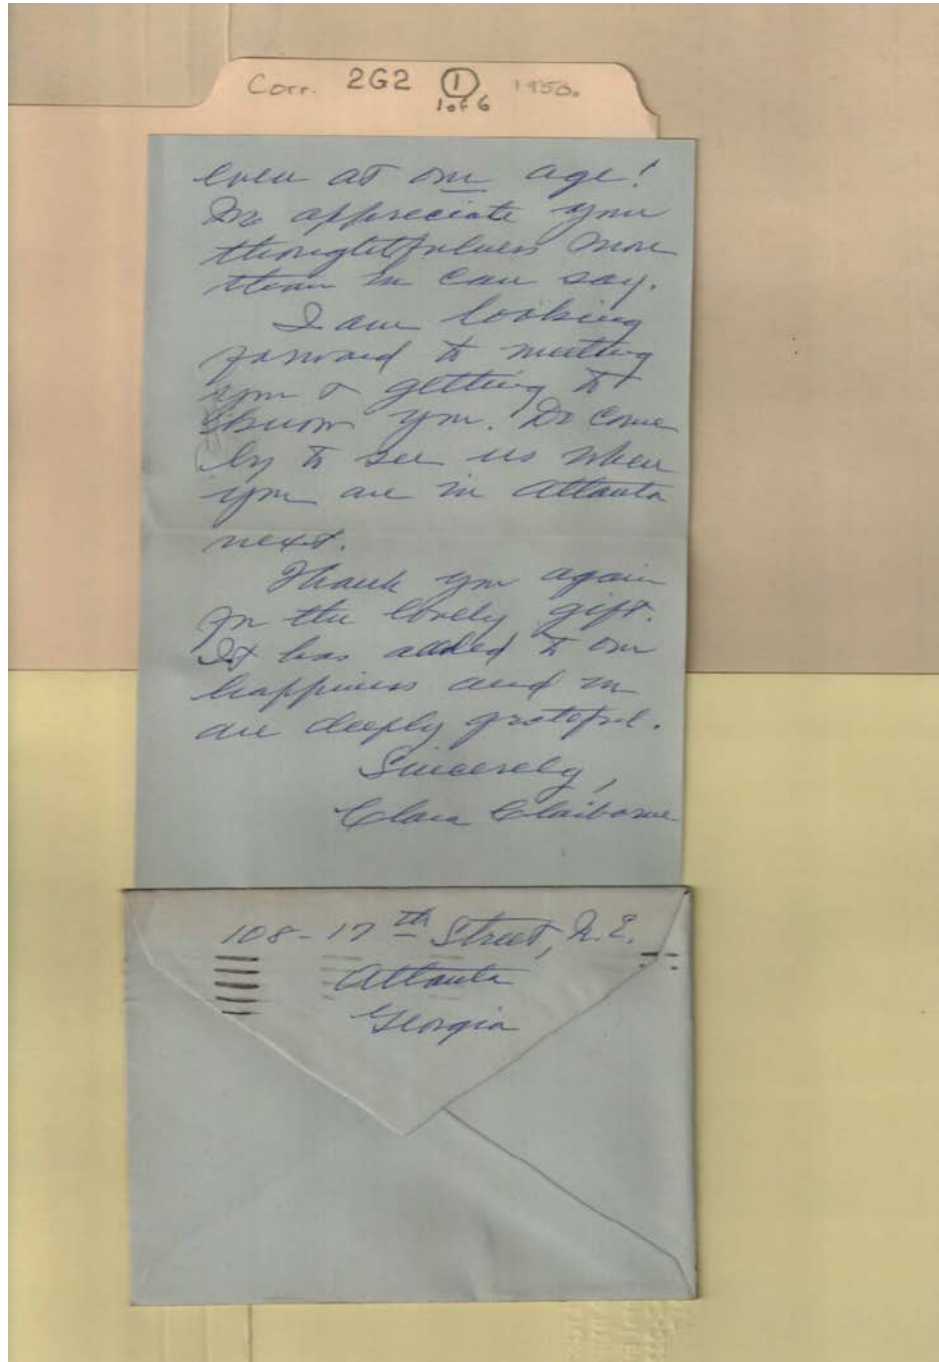 Corr. 2G2 1 1950.
1 of 6
even at our age!
We appreciate your
thoughtfulness more
than we can say.
I am looking
forward to meeting
you & getting to
know you. Do come
by to see us when
you are in Atlanta
next.
Thank you again
for the lovely gift.
It has added to our
happiness and we
are deeply grateful.
Sincerely,
Clara Claiborne
108-17th Street, N.E.
Atlanta
Georgia